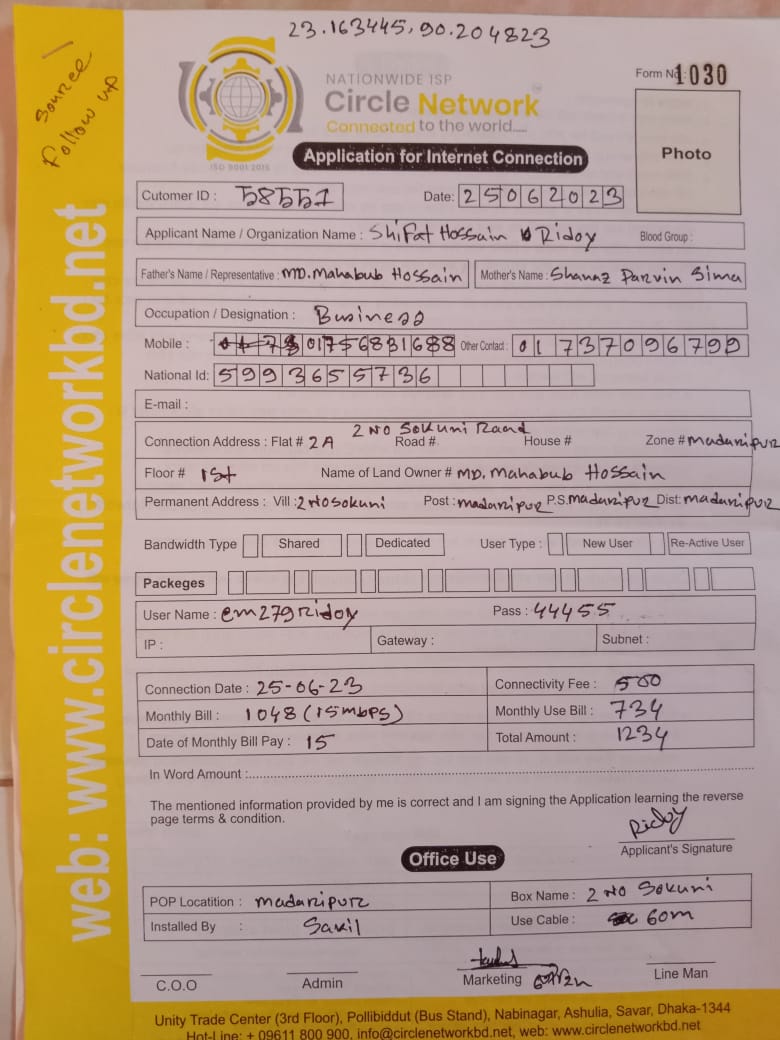 23.163445, 90.204823
Source
Follow up
NATIONWIDE ISP
Circle Network
Connected to the world.....
ISO 9001:2015
Form No: 1030
Application for Internet Connection
Photo
Cutomer ID : 58551 Date: 25062023
Applicant Name / Organization Name : Shifat Hossain Ridoy Blood Group :
Father's Name / Representative : MD. Mahabub Hossain Mother's Name : Shanaz Parvin Sima
Occupation / Designation : Business
Mobile : 01756831688 Other Contact : 01737096799
National Id: 5993655736
E-mail :
Connection Address : Flat # 2A 2 NO Sokuni Raod Road # House # Zone # madaripur
Floor # 1st Name of Land Owner # MD. Mahabub Hossain
Permanent Address : Vill : 2 No sokuni Post : madaripur P.S. madaripur Dist: madaripur
Bandwidth Type Shared Dedicated User Type : New User Re-Active User
Packeges
User Name : em279ridoy Pass : 44455
IP : Gateway : Subnet :
Connection Date : 25-06-23 Connectivity Fee : 500
Monthly Bill : 1048 (15mbps) Monthly Use Bill : 734
Date of Monthly Bill Pay : 15 Total Amount : 1234
In Word Amount :
The mentioned information provided by me is correct and I am signing the Application learning the reverse
page terms & condition.
Ridoy
Applicant's Signature
Office Use
POP Locatition : madaripur Box Name : 2 NO Sokuni
Installed By : Sakil Use Cable : 60m
C.O.O Admin Marketing Line Man
Unity Trade Center (3rd Floor), Pollibiddut (Bus Stand), Nabinagar, Ashulia, Savar, Dhaka-1344
Hot-Line: + 09611 800 900, info@circlenetworkbd.net, web: www.circlenetworkbd.net
web: www.circlenetworkbd.net